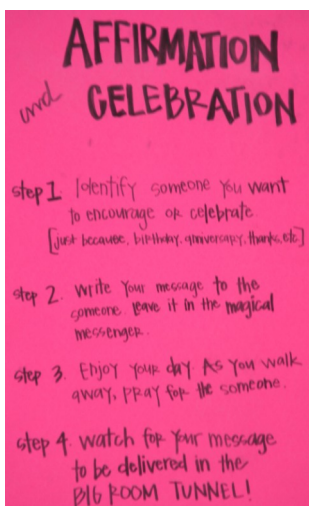 AFFIRMATION
and CELEBRATION
step 1. Identify someone you want
to encourage or celebrate
[just because, birthday, anniversary, thanks, etc]
step 2. write your message to the
someone. leave it in the magical
messenger.
step 3. Enjoy your day. As you walk
away, pray for the someone.
step 4. watch for your message
to be delivered in the
BIG ROOM TUNNEL!